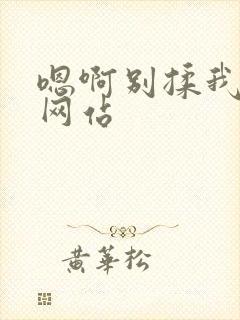 嗯啊别揉我
网占
黄华松